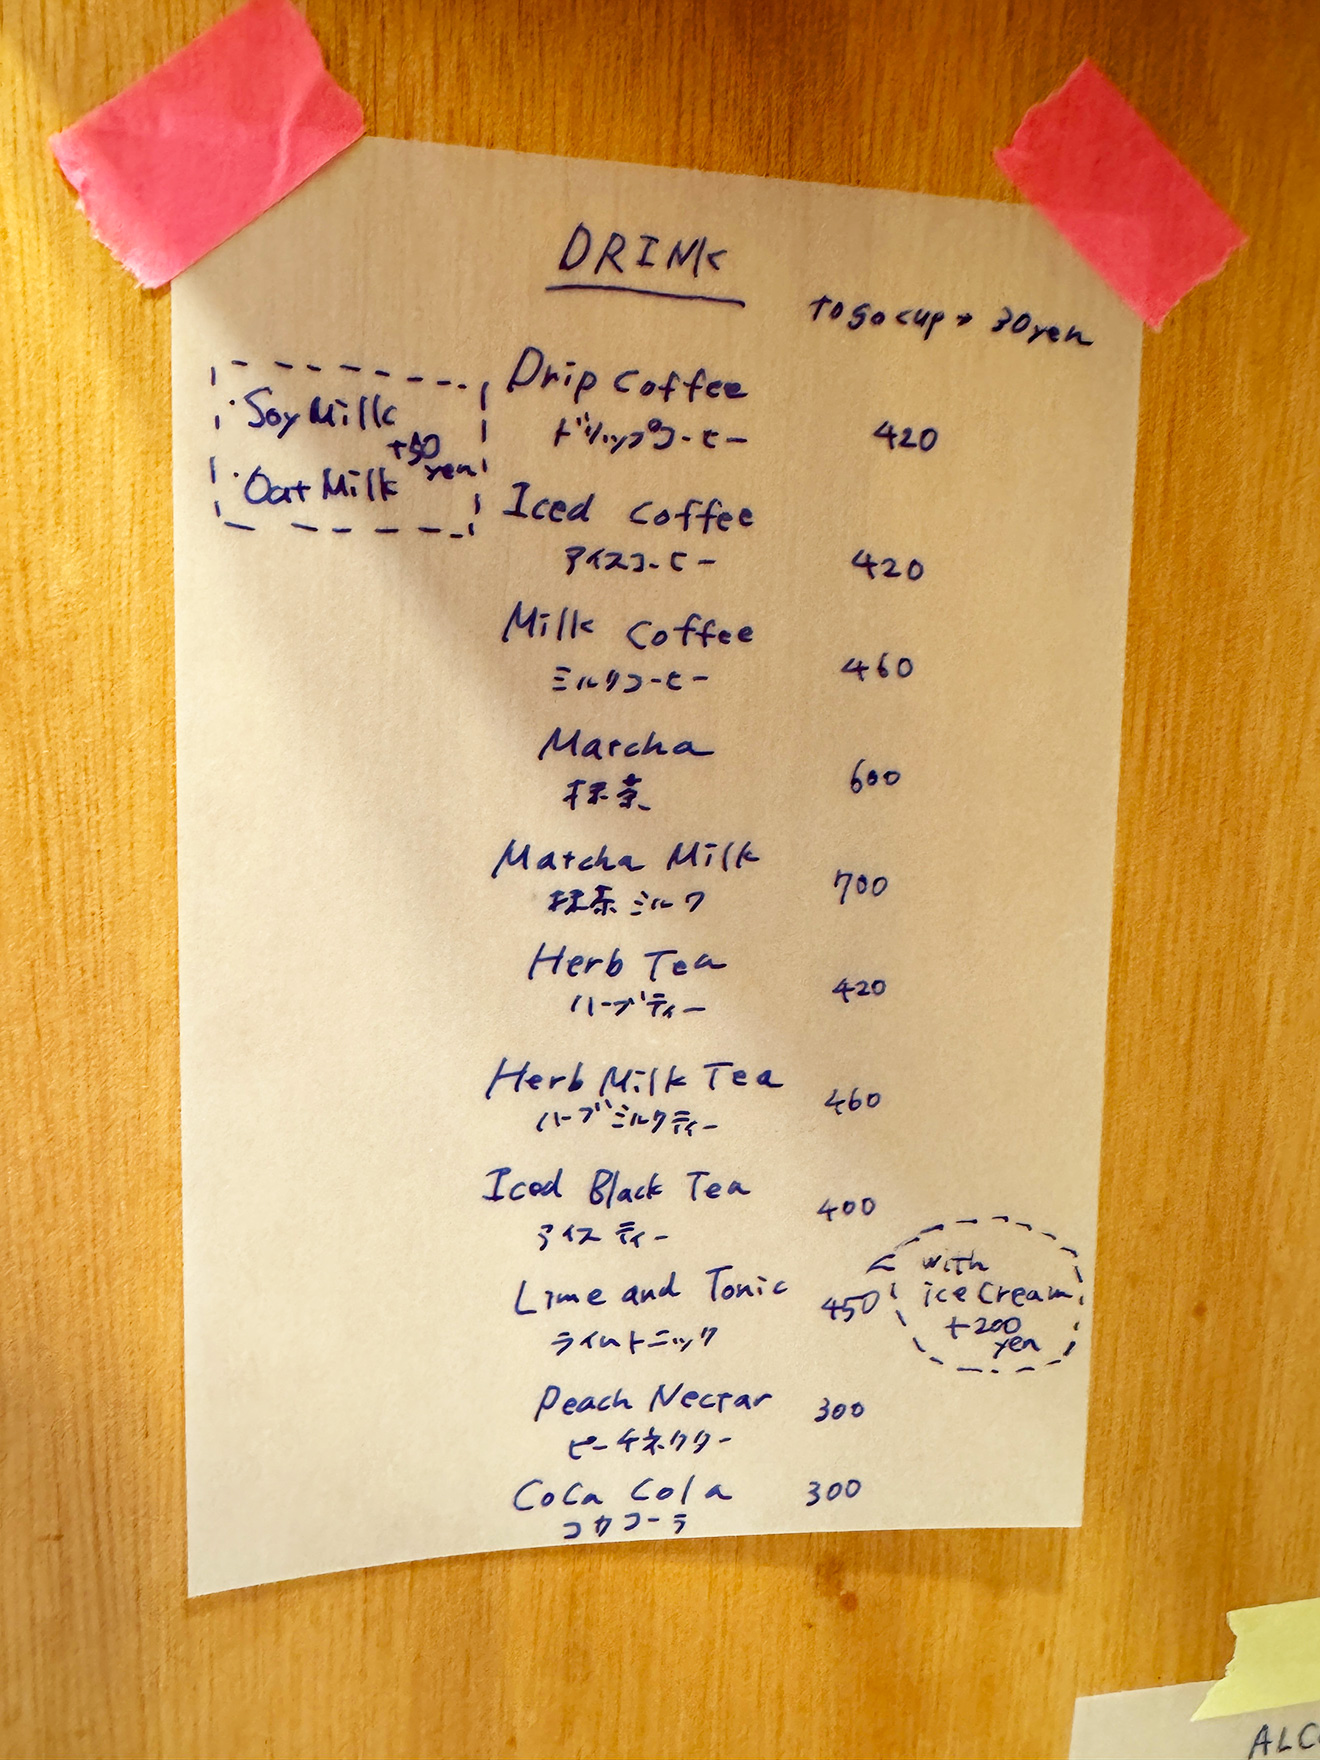 DRINK
to go cup → 30yen
・Soy Milk
+50
yen
・Oat Milk
Drip Coffee
ドリップコーヒー 420
Iced Coffee
アイスコーヒー 420
Milk Coffee
ミルクコーヒー 460
Matcha
抹茶 600
Matcha Milk
抹茶ミルク 700
Herb Tea
ハーブティー 420
Herb Milk Tea 460
ハーブミルクティー
Iced Black Tea 400
アイスティー
Lime and Tonic 450
ライムトニック
with
ice Cream
+200
yen
Peach Nectar 300
ピーチネクター
CoCa Cola 300
コカコーラ